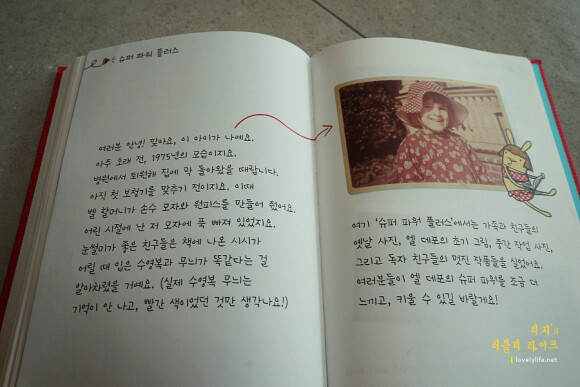 슈퍼 파워 플러스
여러분 안녕! 맞아요, 이 아이가 나예요.
아주 오래 전, 1975년의 모습이지요.
병원에서 퇴원해 집에 막 돌아왔을 때랍니다.
아직 첫 보청기를 맞추기 전이지요. 이때
벨 할머니가 손수 모자와 원피스를 만들어 줬어요.
어린 시절에 난 저 모자에 푹 빠져 있었지요.
눈썰미가 좋은 친구들은 책에 나온 시시가
어릴 때 입은 수영복과 무늬가 똑같다는 걸
알아차렸을 거예요. (실제 수영복 무늬는
기억이 안 나고, 빨간 색이었던 것만 생각나요!)
여기 '슈퍼 파워 플러스'에서는 가족과 친구들의
옛날 사진, 엘 데포의 초기 그림, 중간 작업 사진,
그리고 독자 친구들의 멋진 작품들을 실었어요.
여러분들이 엘 데포의 슈퍼 파워를 조금 더
느끼고, 키울 수 있길 바랄게요!
리지's
러블리 라이프
lovelylife.net